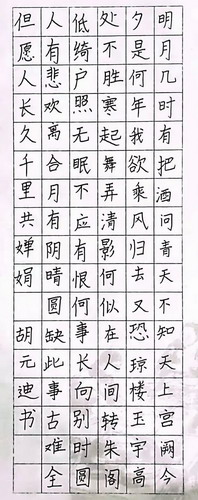 明月几时有把酒问青天不知天上宫阙今
夕是何年我欲乘风归去又恐琼楼玉宇高
处不胜寒起舞弄清影何似在人间转朱阁
低绮户照无眠不应有恨何事长向别时圆
人有悲欢离合月有阴晴圆缺此事古难全
但愿人长久千里共婵娟 胡元迪书